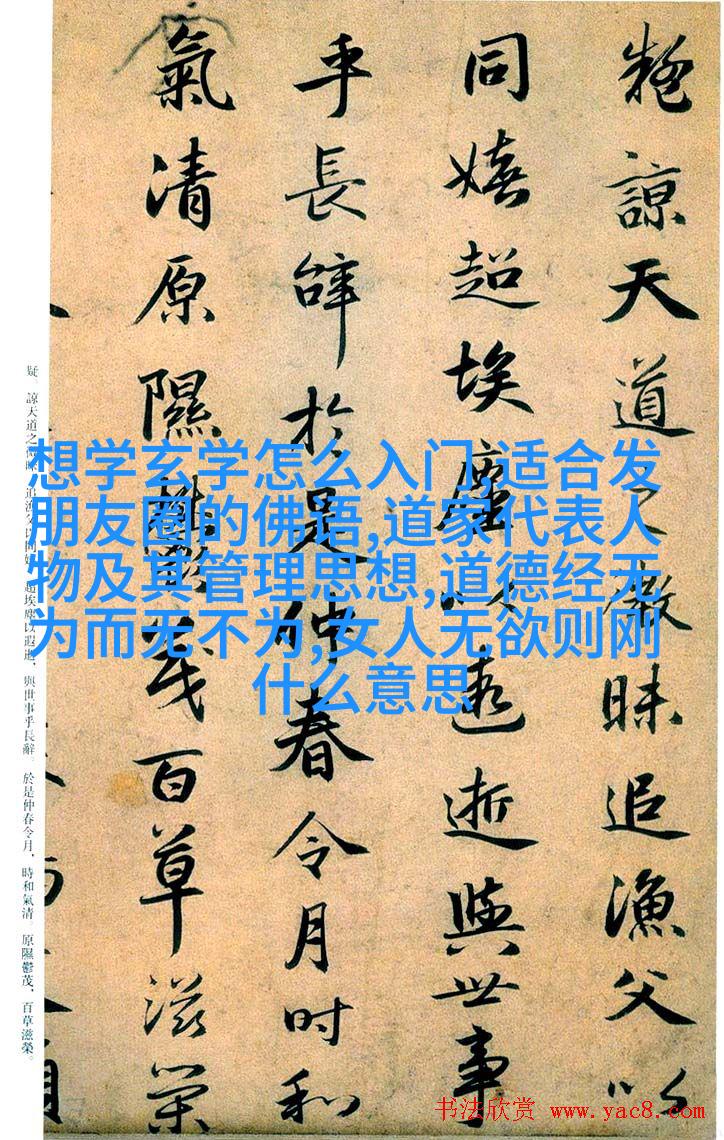 疑諒天道之微昧追漁父以
同嬉超埃塵以遐逝與世事
乎長辭於是仲春令月時和
氣清原隰鬱茂百草滋榮
疑。諒天道之微昧,追漁父以同嬉。超埃塵以遐逝,與世事乎長辭。於是仲春令月,時和氣清。原隰鬱茂,百草滋榮。
想学玄学怎么入门,适合发
朋友圈的佛语,道家代表人
物及其管理思想,道德经无
为而无不为,女人无欲则刚
什么意思
书法欣赏 www.yac8.com